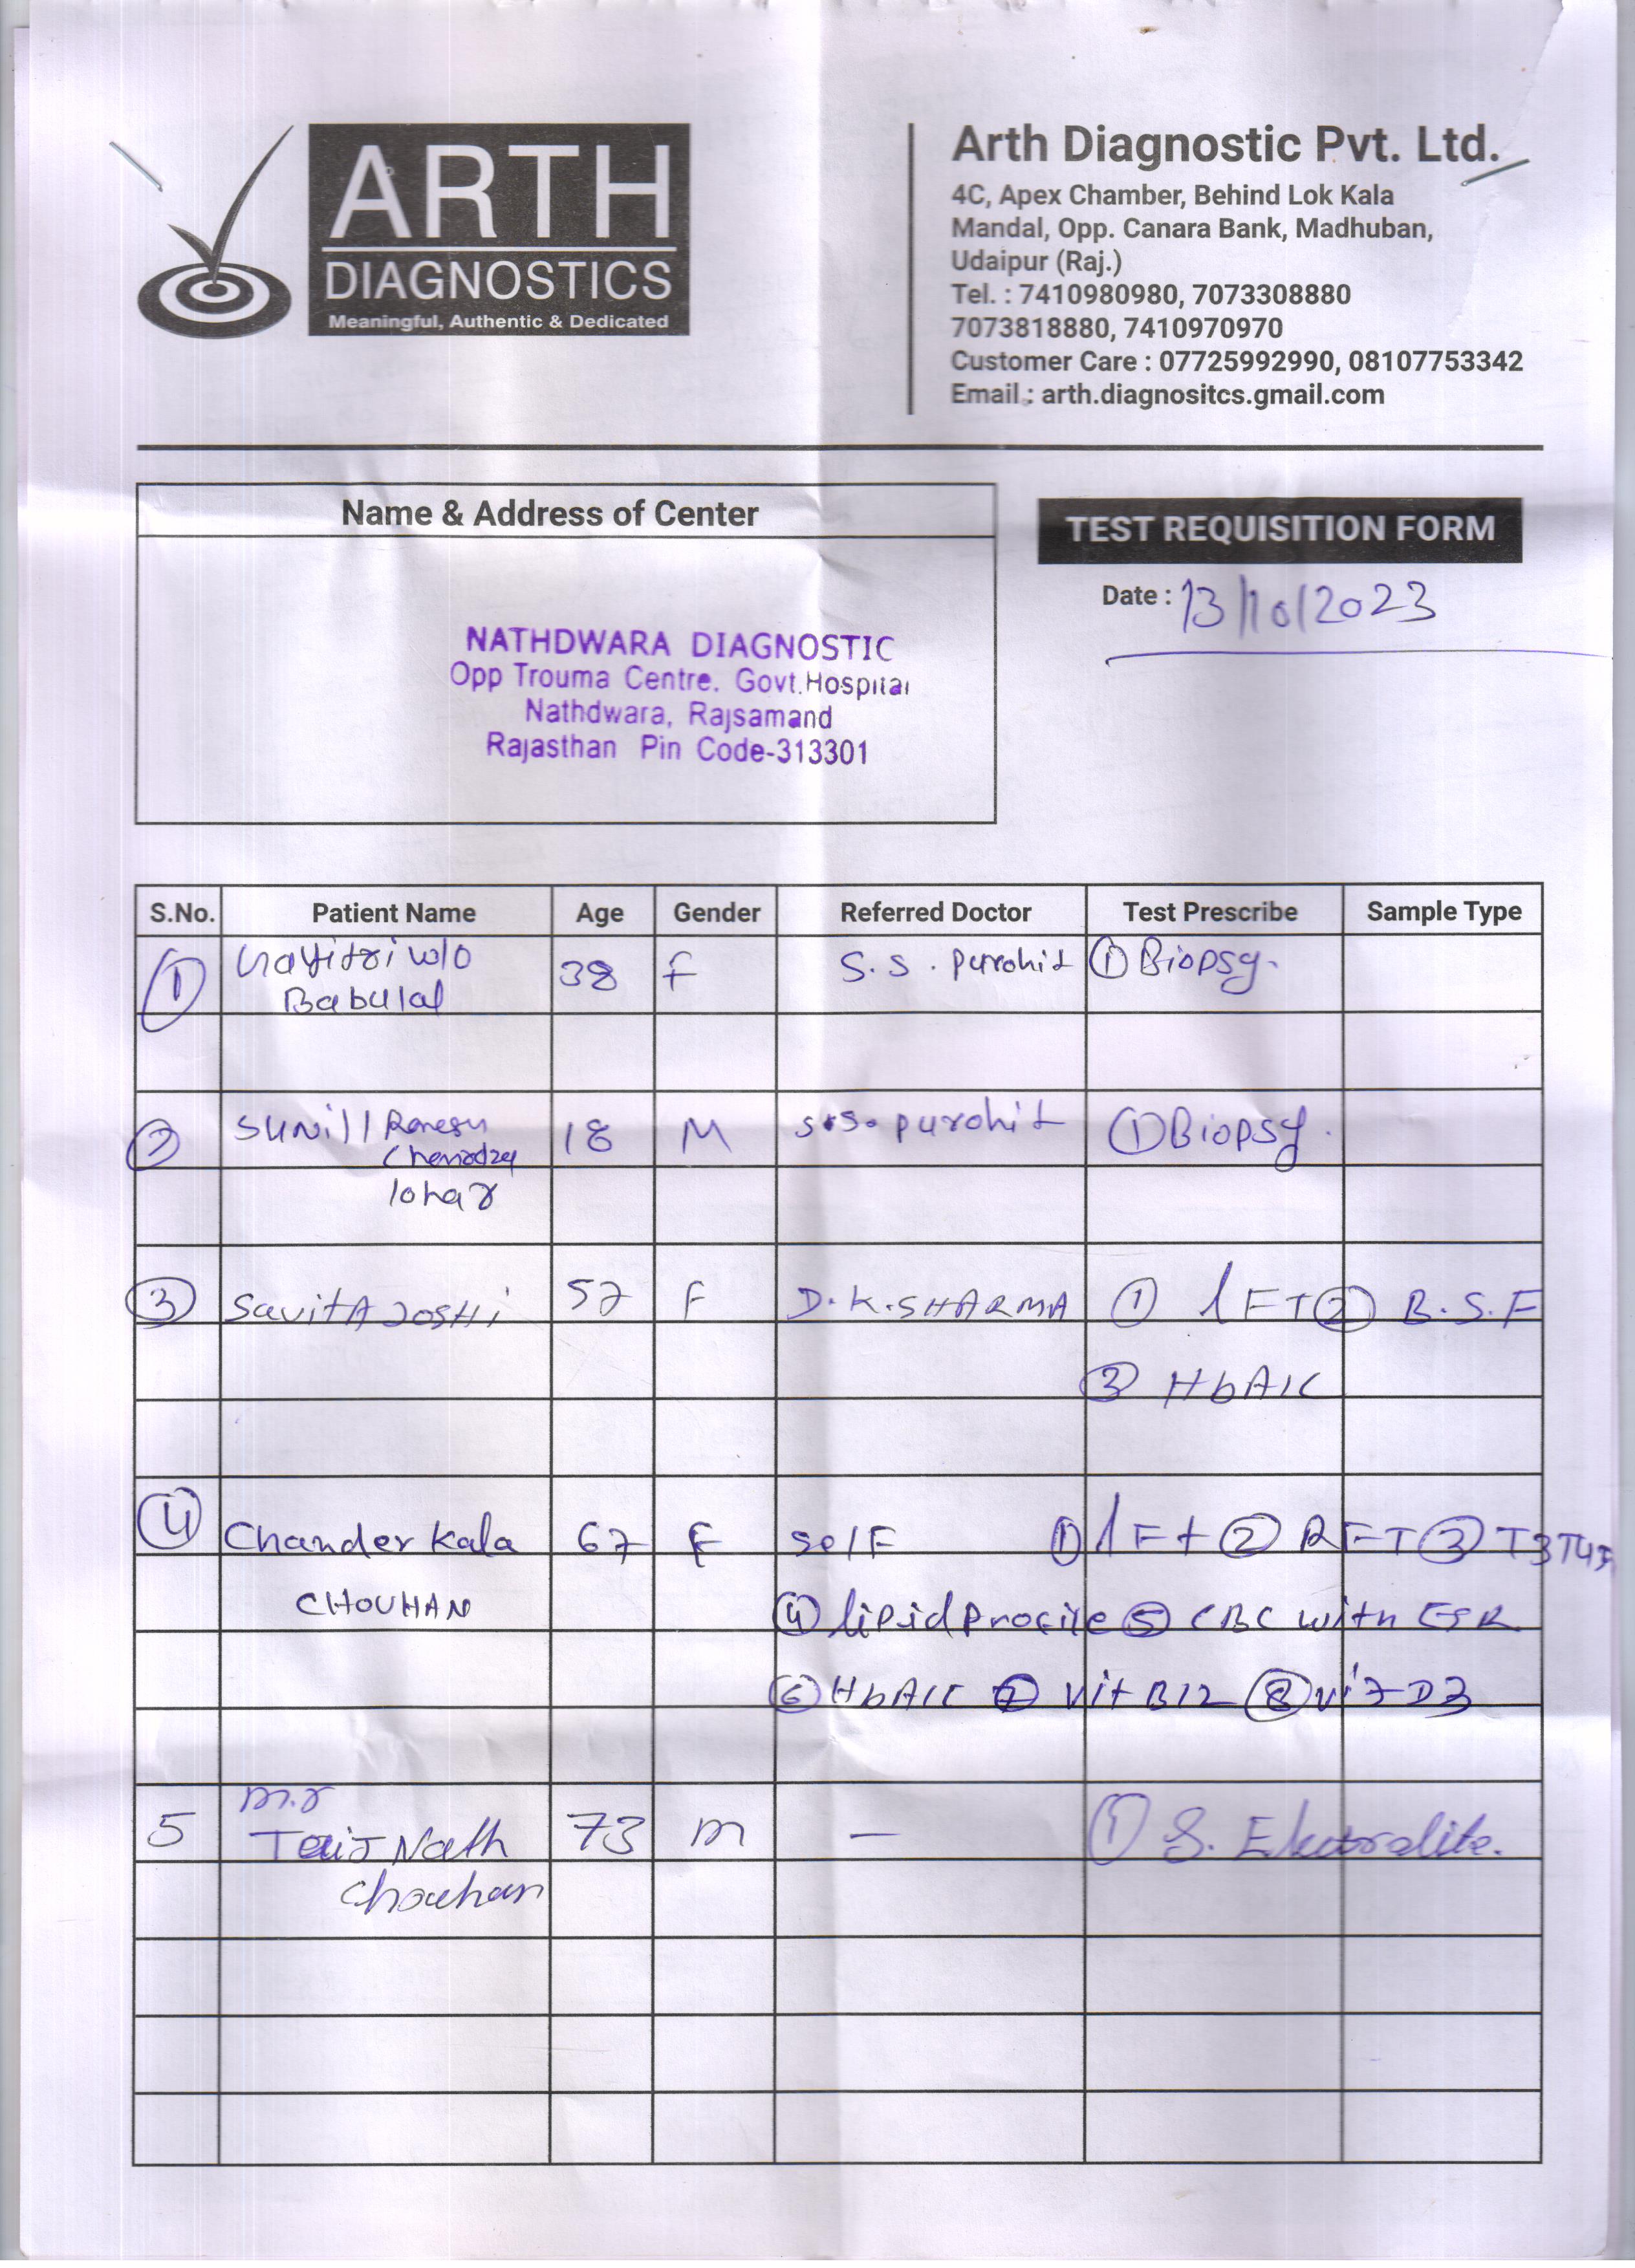 ARTH
DIAGNOSTICS
Meaningful, Authentic & Dedicated
Arth Diagnostic Pvt. Ltd.
4C, Apex Chamber, Behind Lok Kala
Mandal, Opp. Canara Bank, Madhuban,
Udaipur (Raj.)
Tel. : 7410980980, 7073308880
7073818880, 7410970970
Customer Care : 07725992990, 08107753342
Email : arth.diagnositcs.gmail.com
Name & Address of Center
TEST REQUISITION FORM
Date : 13/10/2023
NATHDWARA DIAGNOSTIC
Opp Trouma Centre. Govt.Hospital
Nathdwara, Rajsamand
Rajasthan Pin Code-313301
S.No. Patient Name Age Gender Referred Doctor Test Prescribe Sample Type
1 w/o 38 F S.S. Purohit 1 Biopsy.
Babulal
2 Sunil 18 M S.S. purohit 1 Biopsy.
lohar
3 SavitA JOSHi 57 F D.K.SHARMA 1 LFT 2 B.S.F
3 HbA1C
4 Chander Kala 67 F self 1 LFt 2 RFT 3
CHOUHAN 4 lipid Profile 5 CBC with ESR
6 HbA1C 7 Vit B12 8 Vit D3
m.r
5 Nath 73 m — 1 S. Electoralite.
Chouhan